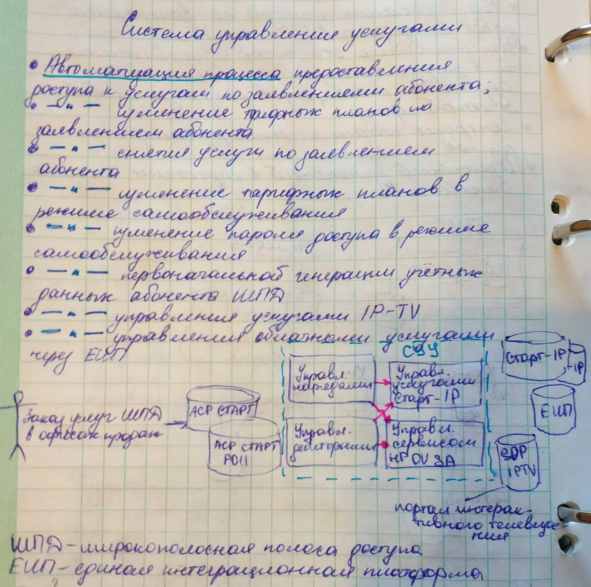 Система управления услугами
• Автоматизация процесса предоставления
доступа к услугам по заявлениям абонента;
• —〃— изменение тарифных планов по
заявлением абонента
• —〃— снятия услуги по заявлением
абонента
• —〃— изменение тарифных планов в
режиме самообслуживания
• —〃— изменение пароля доступа в режиме
самообслуживания
• —〃— первоначальной генерации учётных
данных абонента ШПД
• —〃— управления услугами IP-TV
• —〃— управления облачными услугами
через ЕИП
СУУ
Старт-IP
-IP
Управл.
нарядами
Управл.
услугами
Старт-IP
Заказ услуг ШПД
в офисах продаж
АСР СТАРТ
ЕИП
АСР СТАРТ
РОП
Управл.
Управл.
сервисом
HP OV SA
SDP
IPTV
портал интерак-
тивного телевиде-
ния
ШПД-широкополосная полоса доступа
ЕИП-единая интеграционная платформа